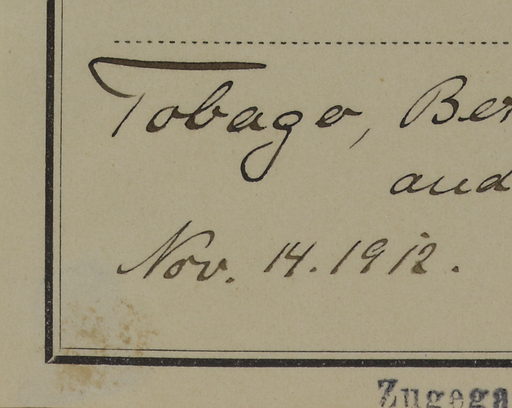 Tobago, Ber
and
Nov. 14. 1912.
Zugega